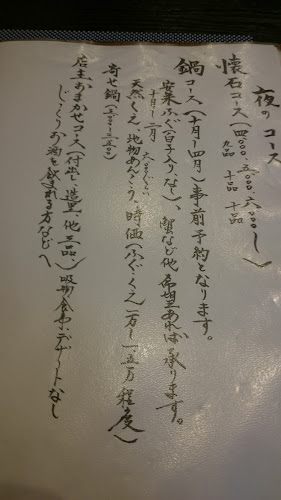 夜の コース
懐石コース(四〇〇〇、五〇〇〇、六〇〇〇〜)
九品 十品 十品
鍋コース(十月〜四月)事前予約となります。
安楽ふぐ(白子入り、なし)、蟹など他 希望あれば承ります。
十月〜二月 六〇〇〇くらい
天然くえ、地物あんこう。時価(ふぐ・くえ 一万〜一、五万 程度)
寄せ鍋(三〇〇〇〜三五〇〇)
店主おまかせコース(付出、造里、他三品)吸物、食事、デザートなし
じっくりお酒を飲まれる方などへ